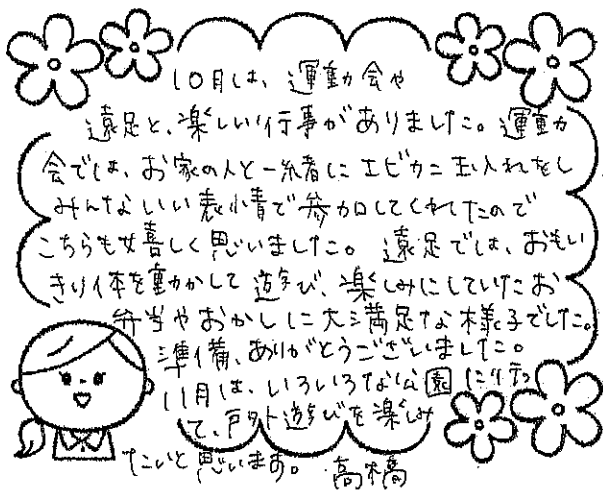 10月は、運動会や
遠足と、楽しい行事がありました。運動
会では、お家の人と一緒にエビカニ玉入れをし
みんないい表情で参加してくれたので
こちらも嬉しく思いました。遠足では、おもい
きり体を動かして遊び、楽しみにしていたお
弁当やおかしに大満足な様子でした。
準備、ありがとうございました。
11月は、いろいろな公園に行っ
て、戸外遊びを楽しみ
たいと思います。高橋